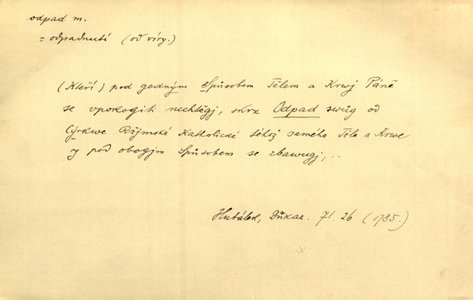 odpad m.
= odpadnutí (od víry.)
(Kteří) pod gedným Spůsobem Tělem a Krwj Páně
se vpokogiti nechtěgj, skrz Odpad swůg od
Cýrkwe Ržjmské Katholické též samého Těla a Krwe
y pod obogjm Spůsobem se zbawugj, ..
Hubálek, Důkaz. 71 26 (1785.)